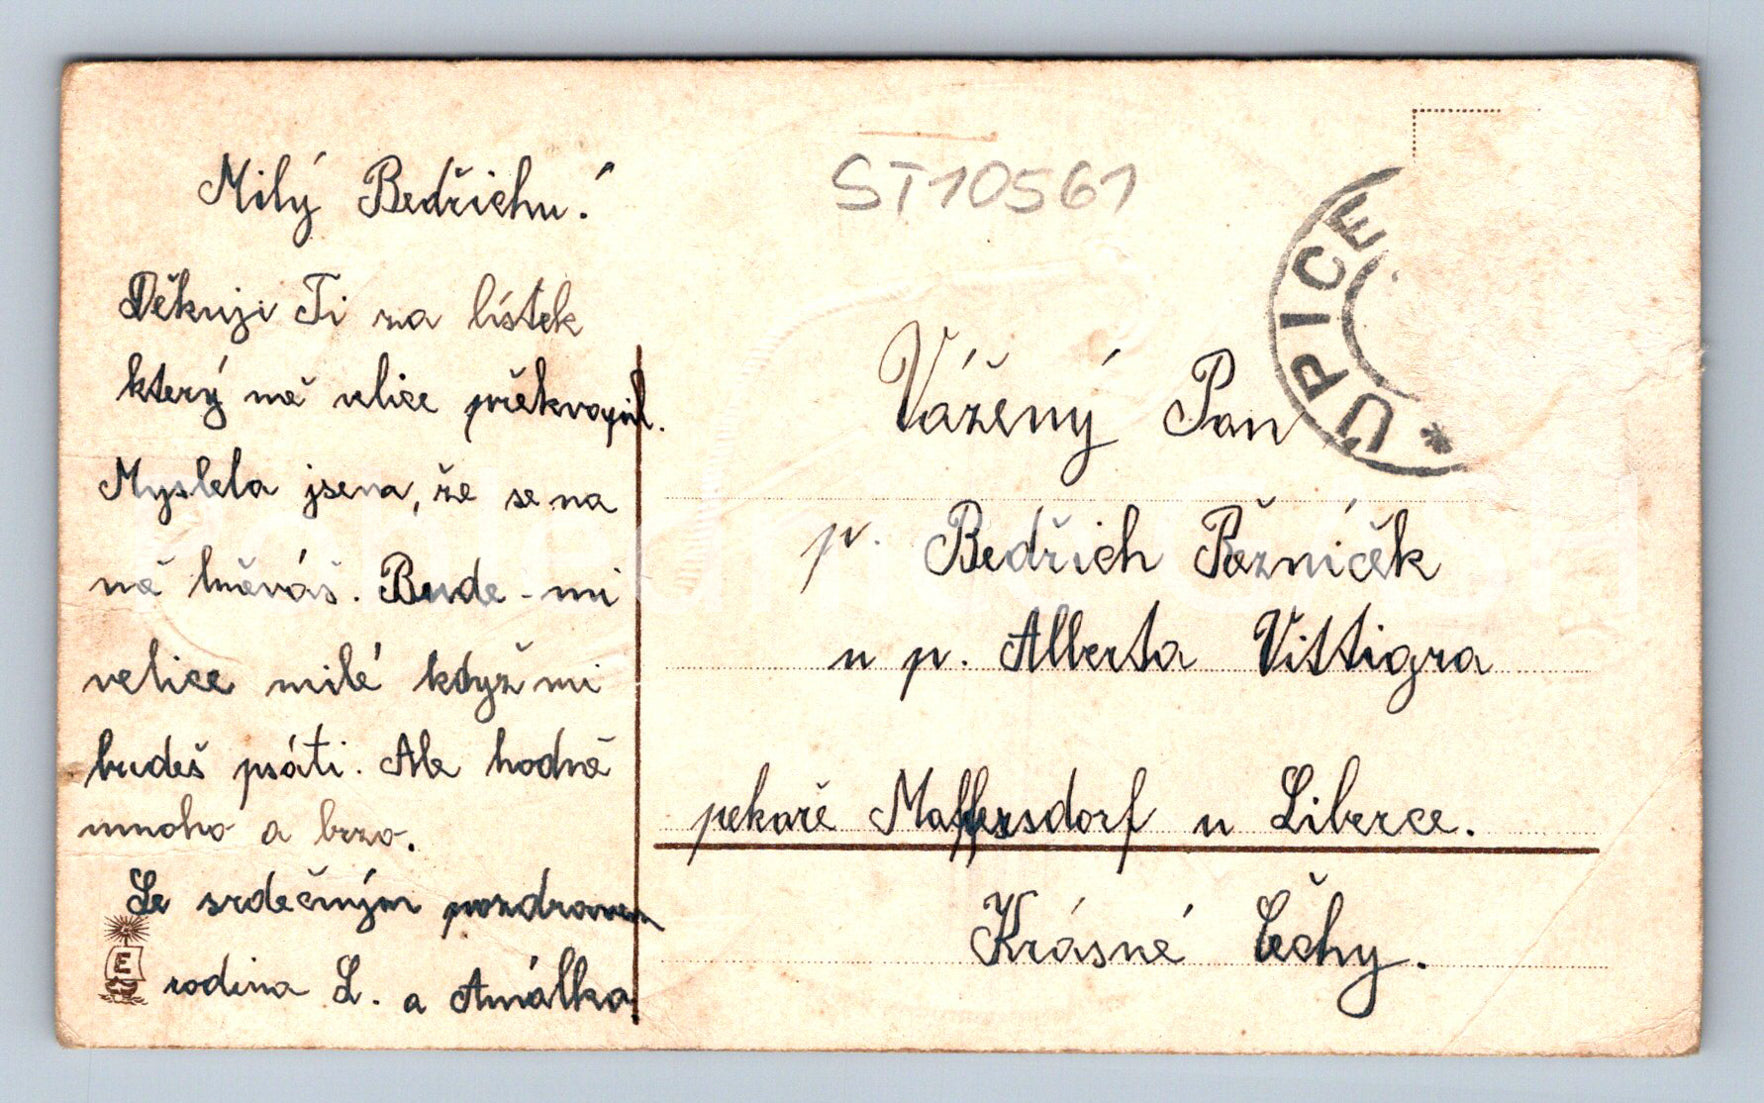 Milý Bedřichu!
Děkuji Ti za lístek
který mě velice překvapil.
Myslela jsem, že se na
mě hněváš. Bude mi
velice milé když mi
budeš psáti. Ale hodně
mnoho a brzo.
Se srdečným pozdravem
rodina L. a Amálka
E
ST10561
ÚPICE *
Vážený Pan
p. Bedřich Řezníček
u p. Alberta Vittigra
pekaře Maffersdorf u Liberce.
Krásné Čechy.